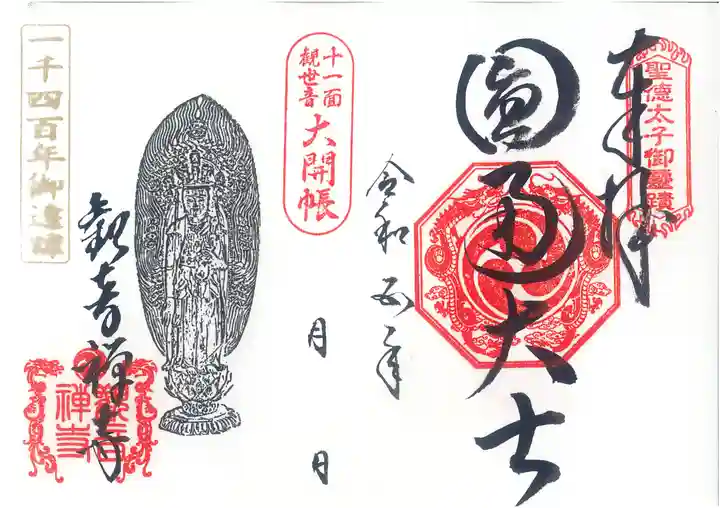 奉拝
聖德太子御靈蹟
圓通大士
令和五年
月 日
十一面
觀世音
大開帳
観音禅寺
一千四百年御遠諱